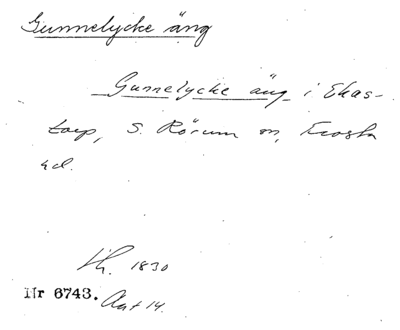 Gunnelycke äng
Gunnelycke äng i Ekas-
torp, S. Rörum sn, Frosta
hd.
Lh. 1830
Nr 6743. Ant 14.